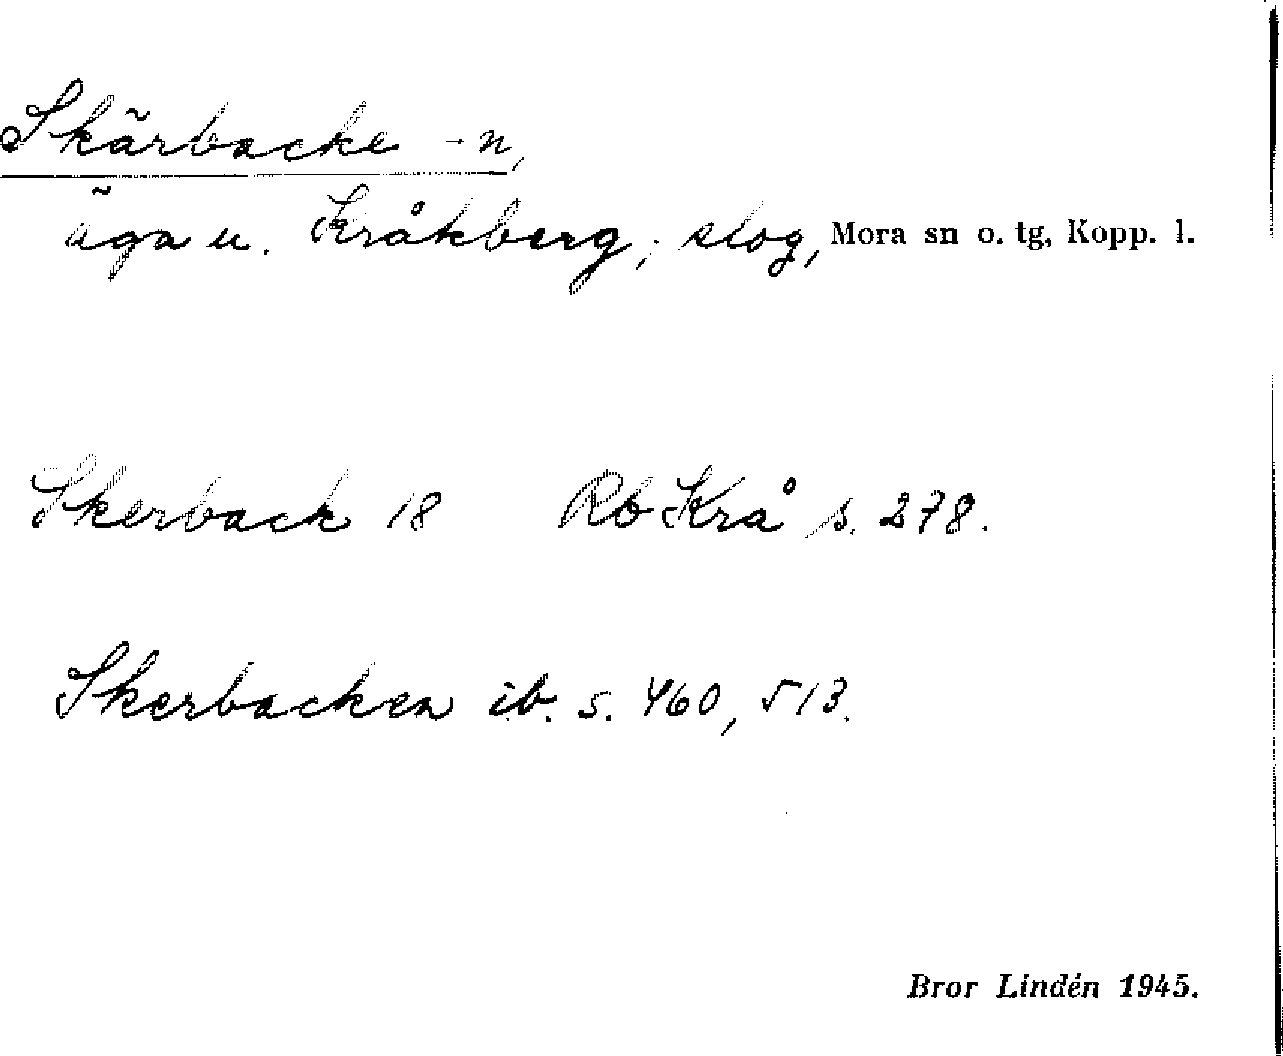 Skärbacke -n,
äga u. Kråkberg; slog, Mora sn o. tg, Kopp. l.
Skerback 18 Rb Krå s. 278.
Skerbacken ib. s. 460, 513.
Bror Lindén 1945.